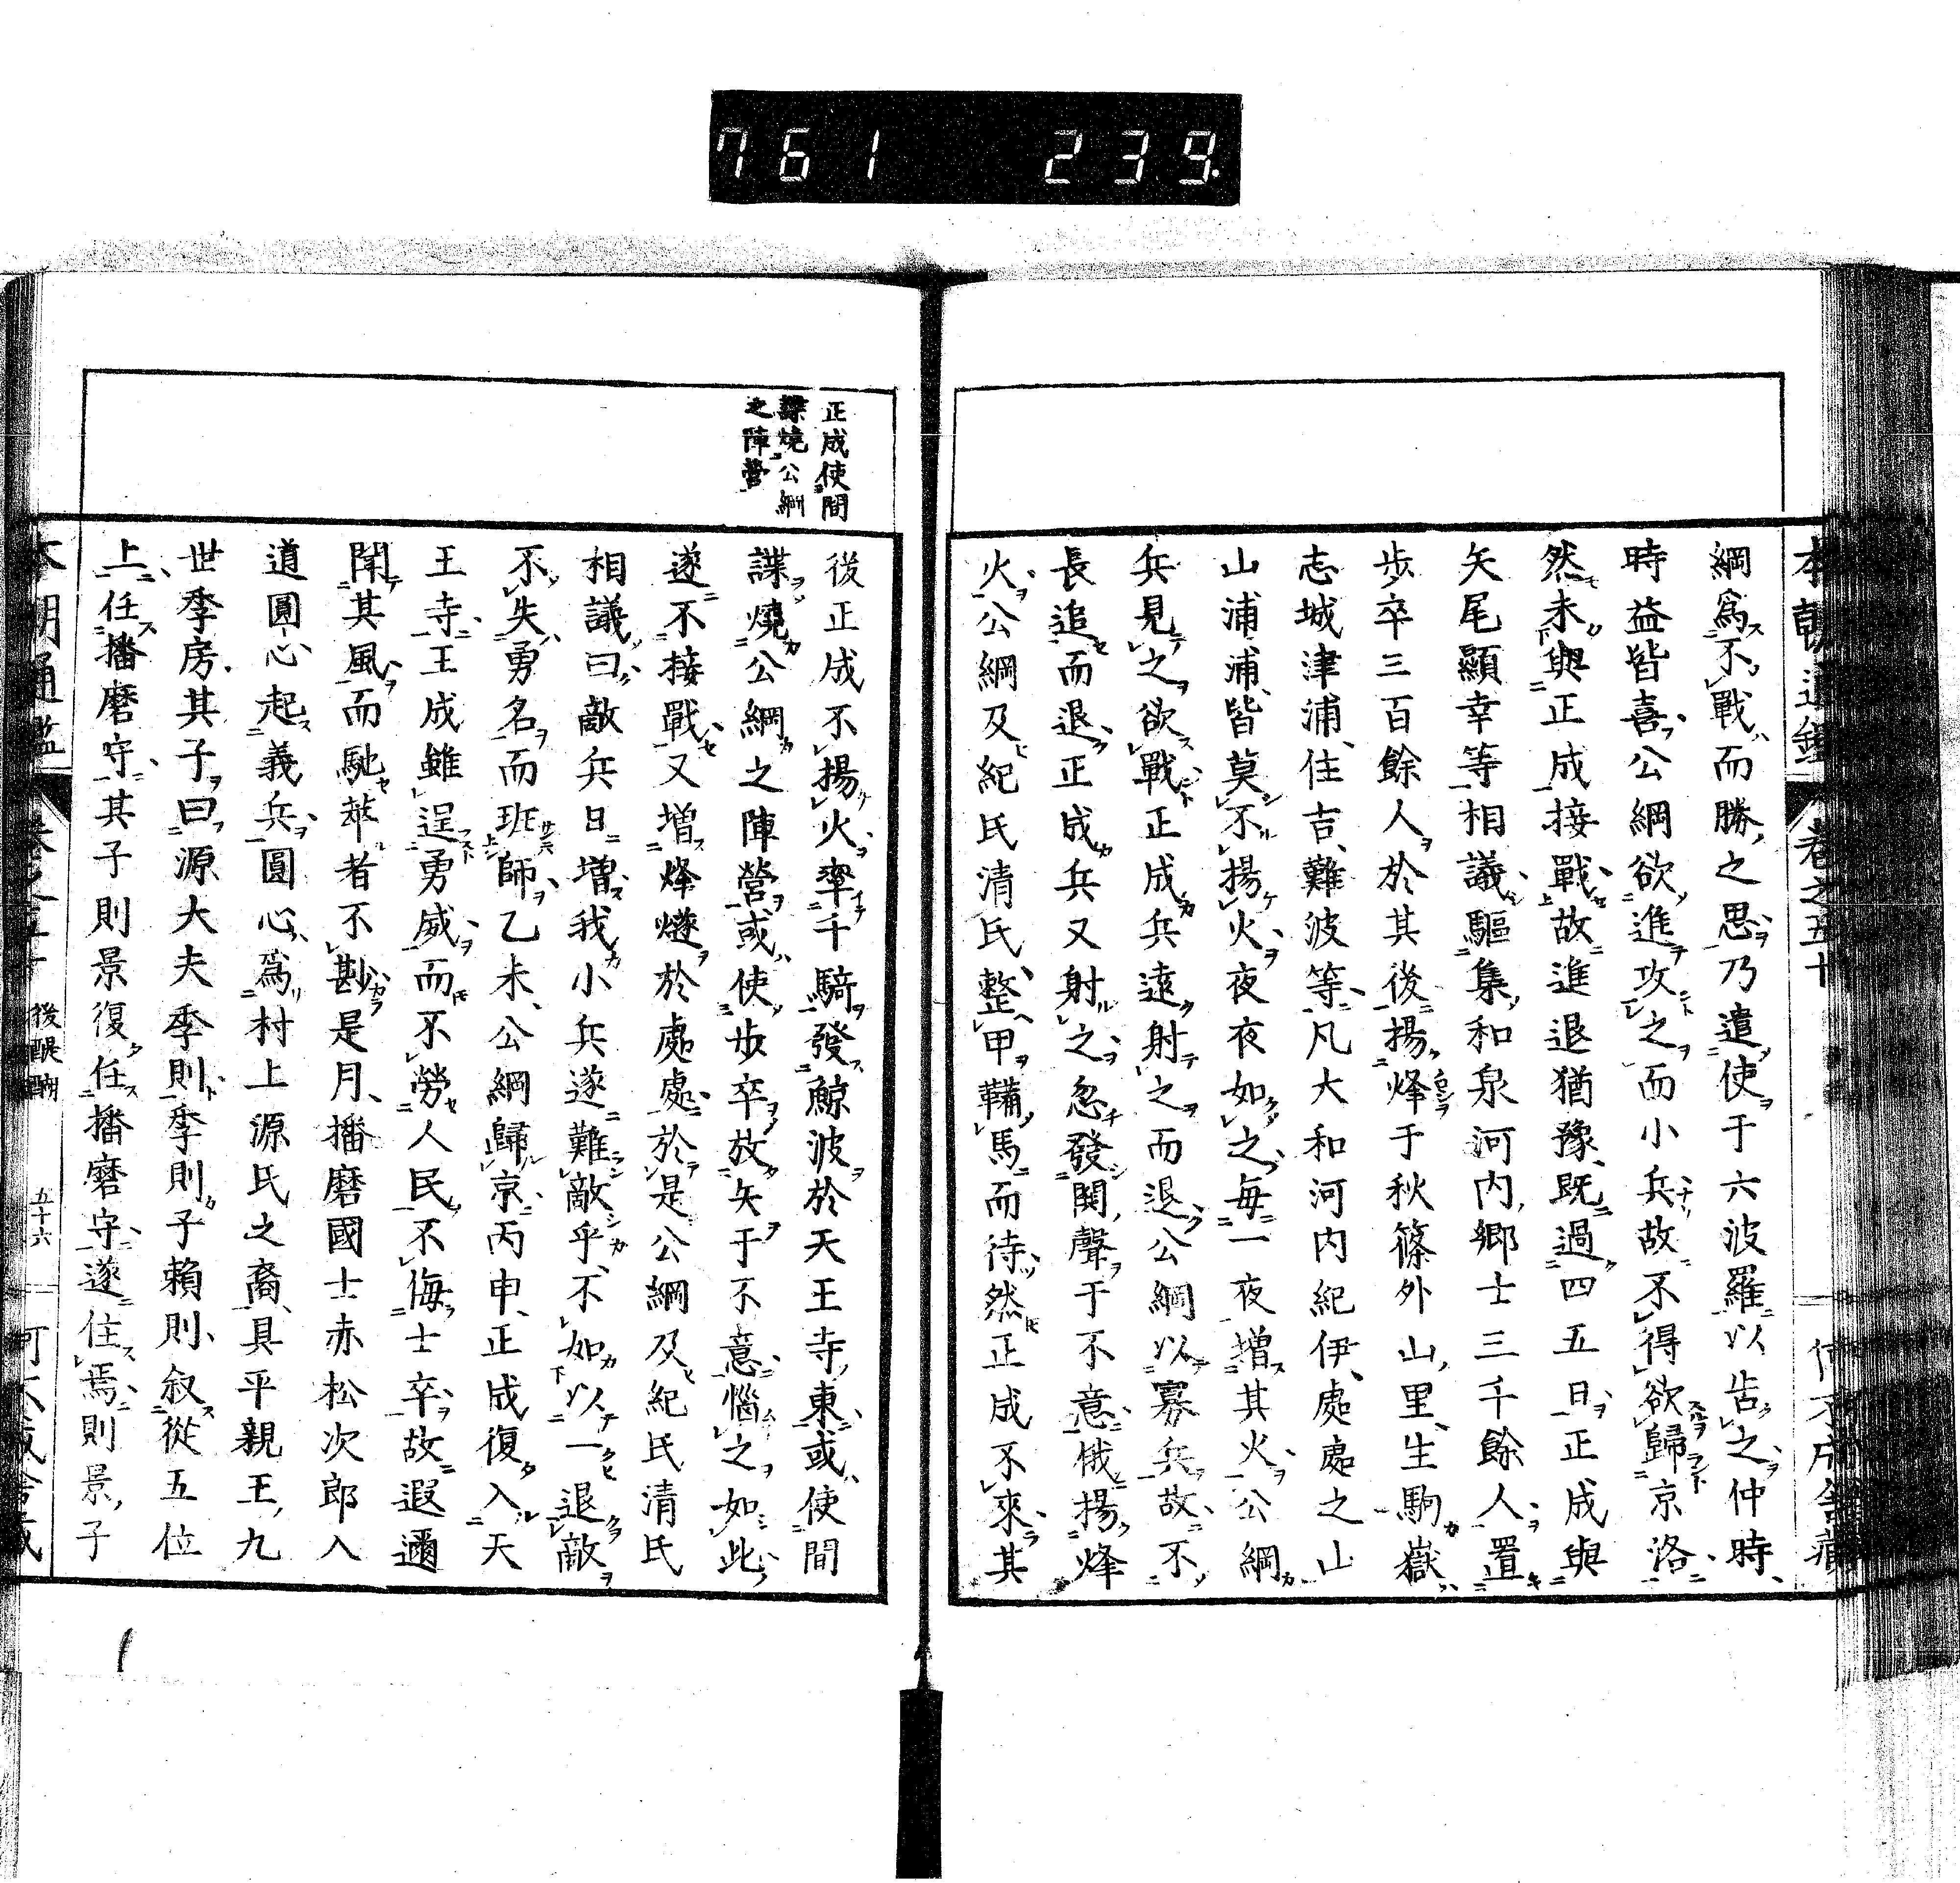 761 239
本朝通鑑 卷之五十
綱爲不戰而勝之思乃遣使于六波羅以告之仲時
時益皆喜公綱欲進攻之而小兵故不得欲歸京洛
然未與正成接戰故進退猶豫既過四五日正成與
矢尾顯幸等相議驅集和泉河内鄉士三千餘人置
步卒三百餘人於其後揚烽于秋篠外山里生駒嶽
志城津浦住吉難波等凡大和河内紀伊處處之山
山浦浦皆莫不揚火夜夜如之每一夜增其火公綱
兵見之欲戰正成兵遠射之而退公綱以寡兵故不
長追而退正成兵又射之忽發鬨聲于不意俄揚烽
火公綱及紀氏清氏整甲鞴馬而待然正成不來其
正成使間
諜燒公綱
之陣營
後正成不揚火率千騎發鯨波於天王寺東或使間
諜燒公綱之陣營或使步卒放矢于不意惱之如此
遂不接戰又增烽燧於處處於是公綱及紀氏清氏
相議曰敵兵日增我小兵遂難敵乎不如以一退敵
不失勇名而班師乙未公綱歸京丙申正成復入天
王寺王成雖逞勇威而不勞人民不侮士卒故遐邇
聞其風而馳萃者不尠是月播磨國士赤松次郎入
道圓心起義兵圓心爲村上源氏之裔具平親王九
世季房其子曰源大夫季則季則子賴則叙從五位
上任播磨守其子則景復任播磨守遂住焉則景子
本朝通鑑 卷之五十 後醍醐 五十六